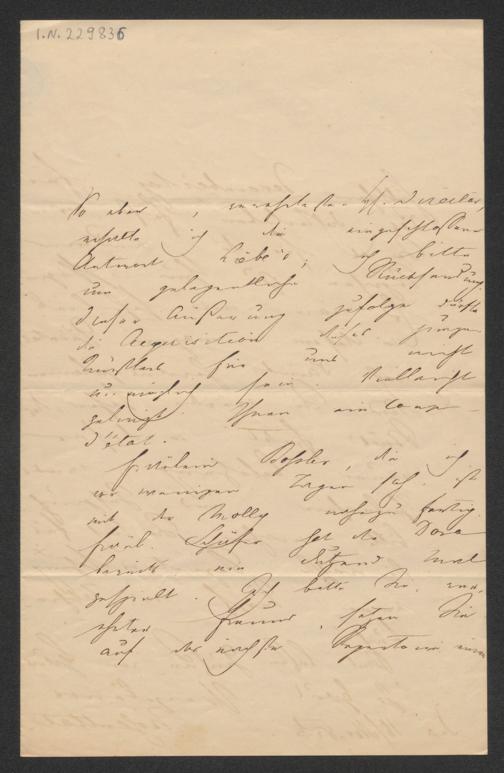 I.N. 229836
So eben, verehrtester H. Director,
erhalte ich die eingeschlossene
Antwort Lobe's; ich bitte
um gelegentliche Rücksendung
dieser Äußerung zufolge dürfte
die Acquisition dieses jungen
Künstlers für uns nicht
unmöglich sein. Vielleicht
gelingt Ihnen ein Coup
d'état.
Fräulein, die ich
vor wenigen Tagen sah, ist
mit der Molly nahezu fertig.
Fräul. Schäfer hat die Dora
bereits ein dutzend Mal
gespielt. Ich bitte Sie, ver-
ehrter Freund, setzen Sie
auf das nächste Repertoire